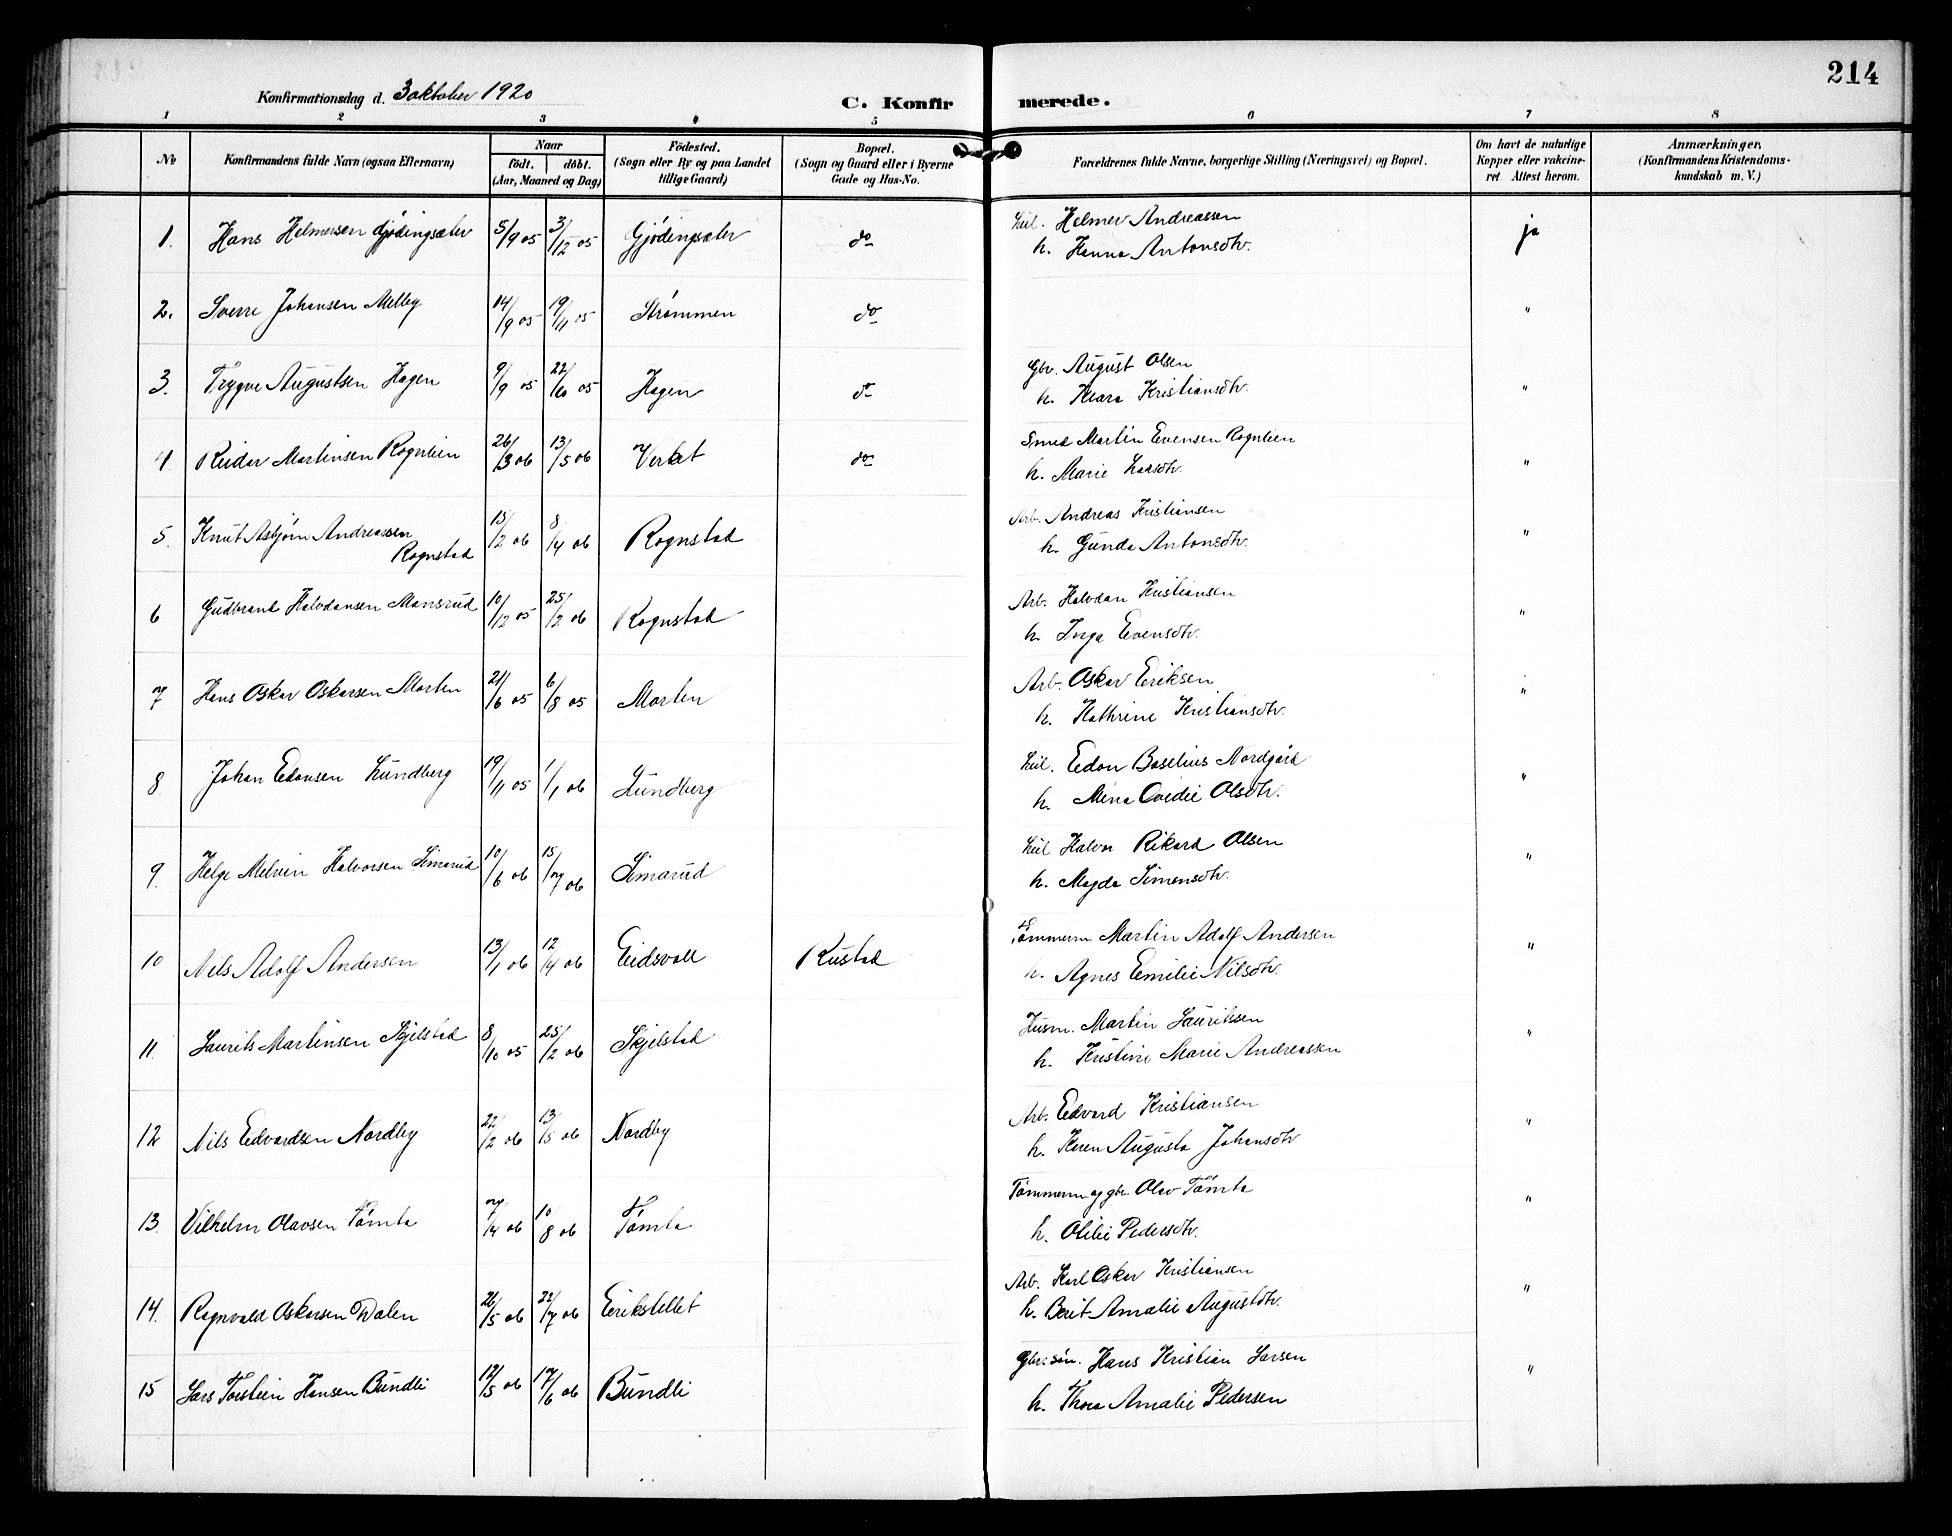 214
Konfirmationsdag d. 3 oktober 1920
C. Konfirmerede.
1 2 3 4 5 6 7 8
No
Konfirmandens fulde Navn (ogsaa Efternavn)
Naar
født. døbt.
(Aar, Maaned og Dag)
Fødested.
(Sogn eller By og paa Landet
tillige Gaard)
Bopæl.
(Sogn og Gaard eller i Byerne
Gade og Hus-No.
Forældrenes fulde Navne, borgerlige Stilling (Næringsvei) og Bopæl.
Om havt de naturlige
Kopper eller vakcine-
ret Attest herom.
Anmærkninger.
(Konfirmandens Kristendoms-
kundskab m. V.)
1. Hans Helmersen Gjødingsæter 5/9 05 3/12 05 Gjødingsæter do Leil. Helmer Andreassen ja
h. Hanna Antonsdtr.
2. Sverre Johansen Melby 14/9 05 19/11 05 Strømmen do "
3. Trygve Augustsen Hagen 9/9 05 22/10 05 Hagen do Gbr. August Olsen "
h. Klara Kristiansdtr.
4. Reidar Martinsen Rognlien 26/3 06 13/5 06 Verket do Smed Martin Evensen Rognlien "
h. Marie Larsdtr.
5. Knut Asbjørn Andreassen Rognstad 15/2 06 8/4 06 Rognstad Arb. Andreas Kristiansen "
h. Gunda Antonsdtr.
6 Gudbrand Halvdansen Mansrud 10/12 05 25/2 06 Rognstad Arb. Halvdan Kristiansen "
h. Inga Evensdtr.
7 Hans Oskar Oskarsen Marten 21/6 05 6/8 05 Marten Arb. Oskar Eriksen "
h. Kathrine Kristiansdtr.
8 Johan Edonsen Lundberg 19/11 05 1/1 06 Lundberg Leil. Edon Baselius Nordgård "
h. Mina Ovedie Olsdtr.
9. Helge Melvin Halvorsen Simarud 10/6 06 15/7 06 Simarud Leil Halvor Rikard Olsen "
h. Magda Simensdtr.
10 Nils Adolf Andersen 13/1 06 12/4 06 Eidsvoll Rustad Tømmerm Martin Adolf Andersen "
h. Agnes Emilie Nilsdtr.
11. Laurits Martinsen Skjelstad 8/10 05 25/2 06 Skjelstad Husm. Martin Lauritssen "
h. Kristine Marie Andreassen
12 Nils Edvardsen Nordby 22/2 06 13/5 06 Nordby Arb. Edvard Kristiansen "
h. Karen Augusta Johansdtr
13. Vilhelm Olavsen Tømta 7/4 06 10/8 06 Tømta Tømmerm og gbr. Olav Tømta "
h. Olilie Pedersdtr.
14. Ragnvald Oskarsen Dalen 26/5 06 22/7 06 Eerikstellet Arb. Karl Oskar Kristiansen "
h. Berit Amalie Augustdtr.
15 Lars Torstein Hansen Bundli 12/5 06 17/6 06 Bundli Gbr.søn. Hans Kristian Larsen "
h. Thora Amalie Pedersen